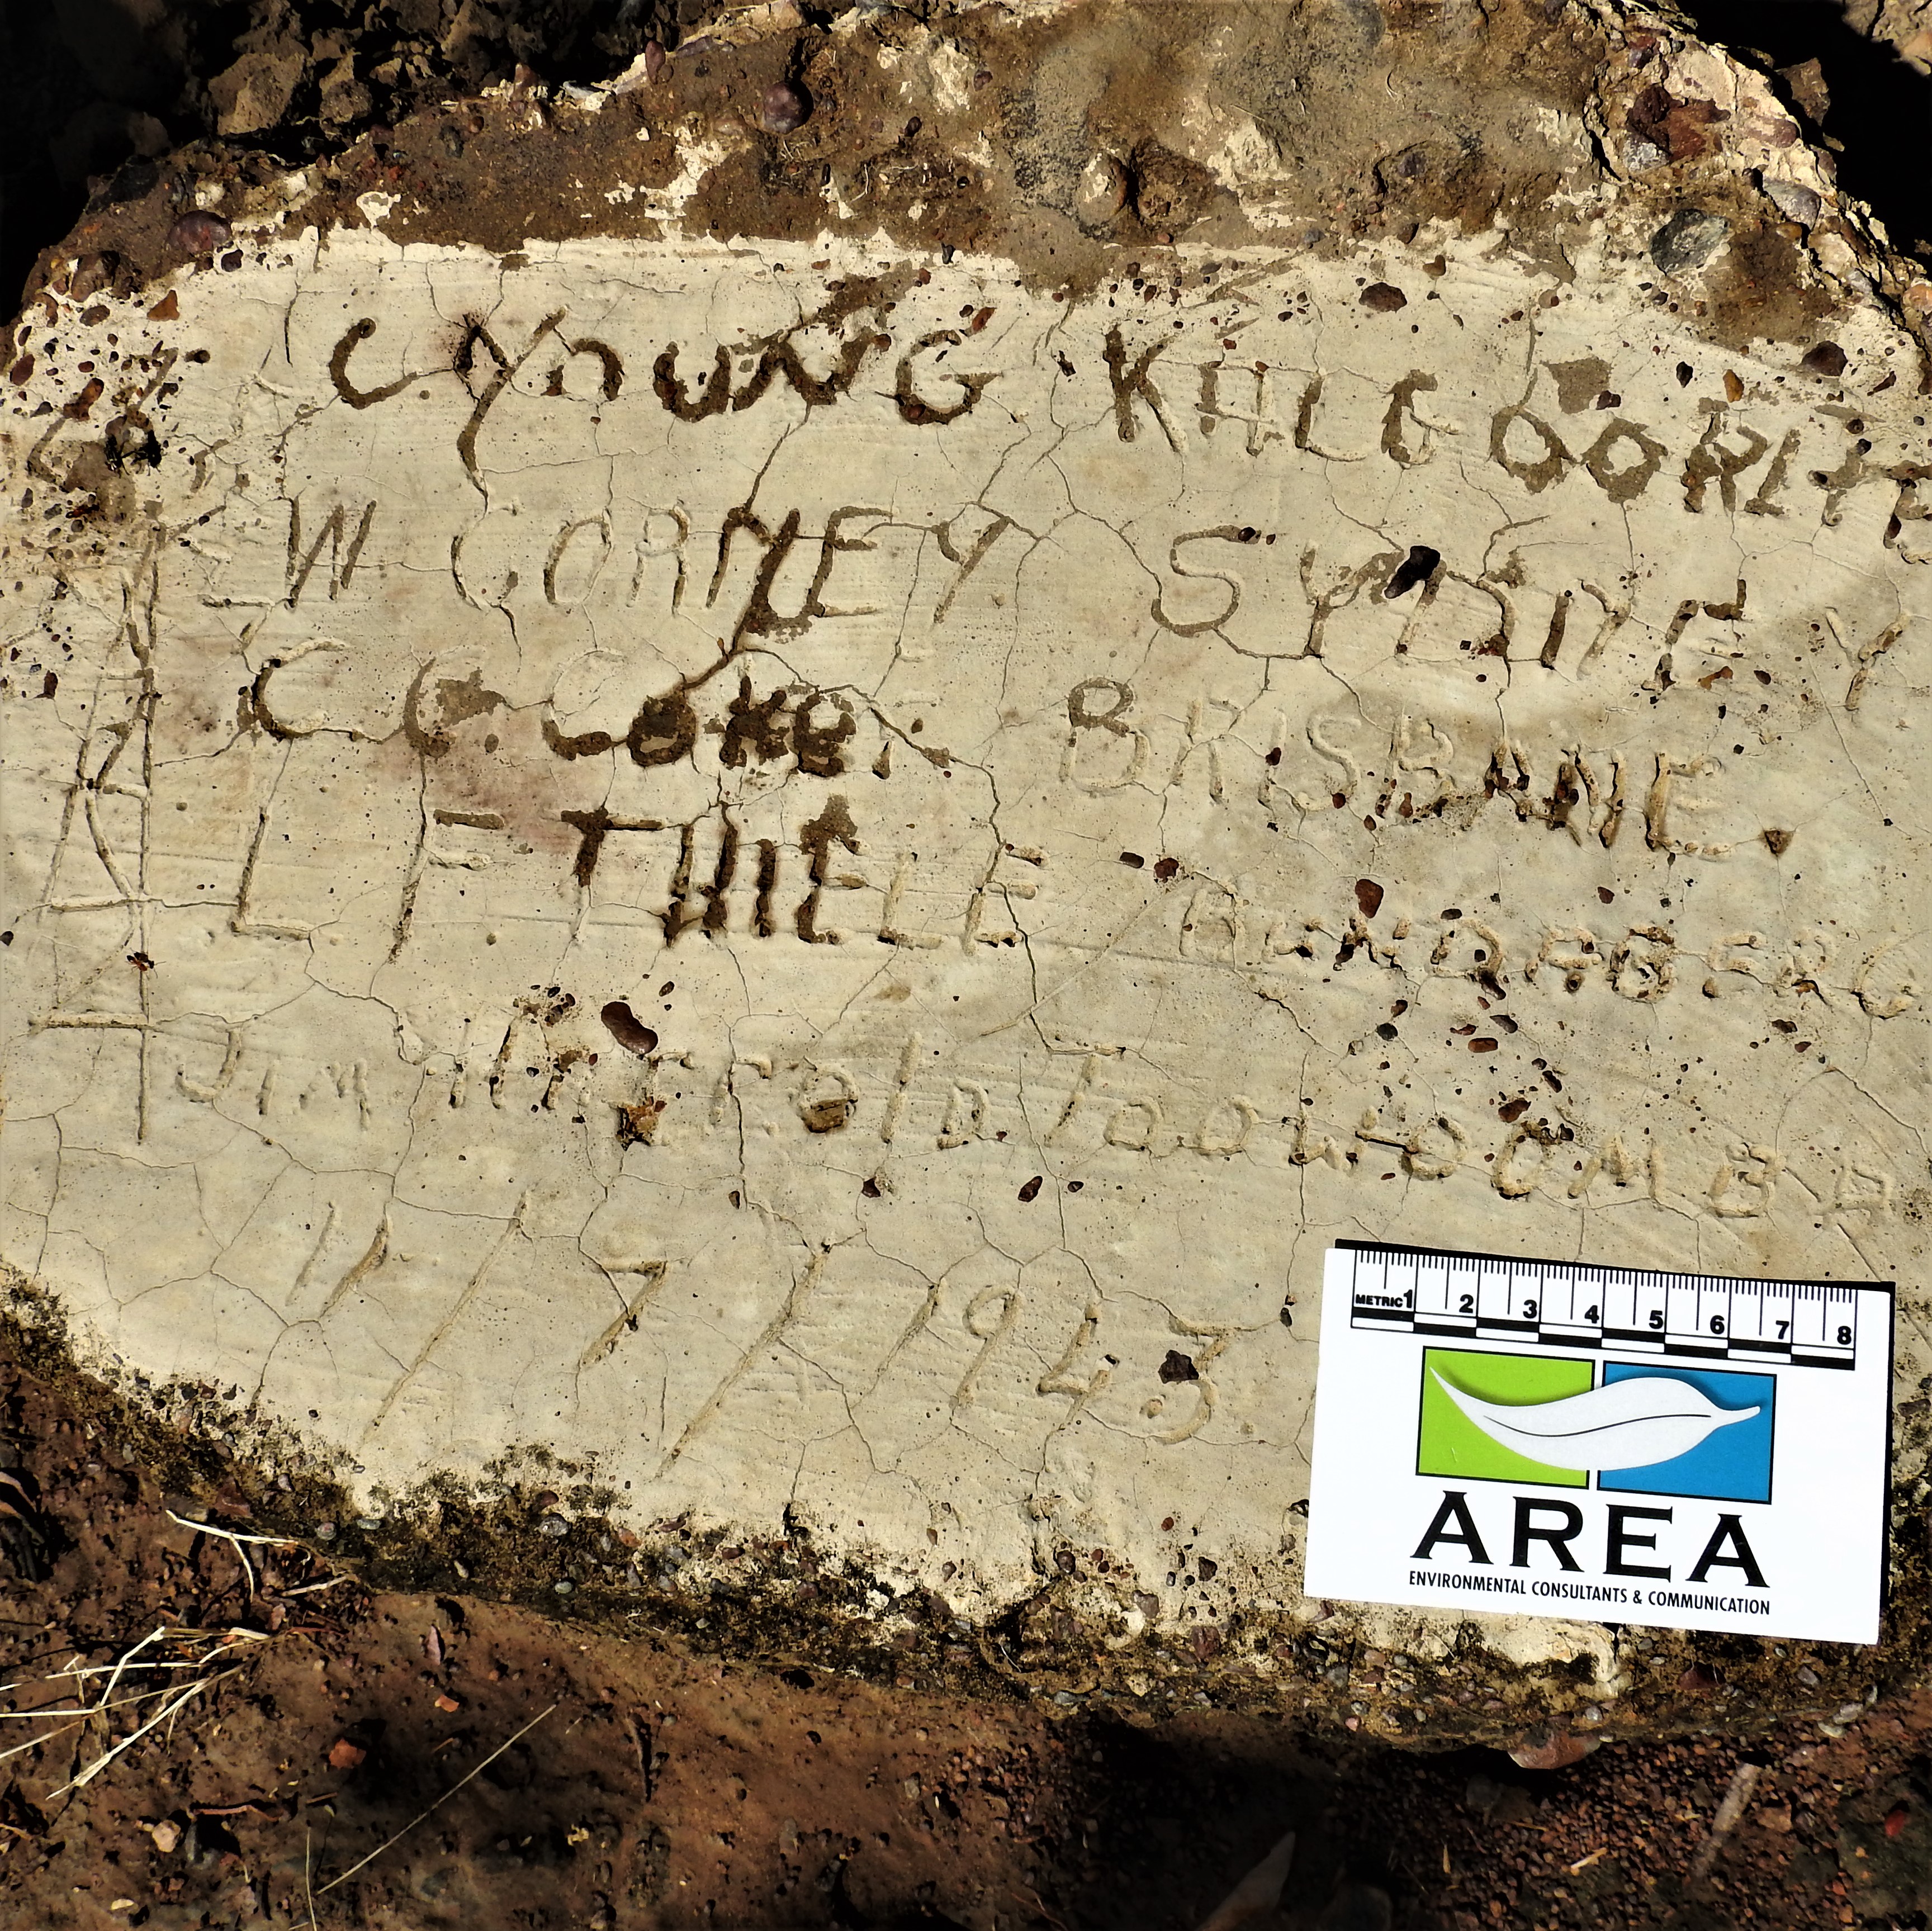 C YOUNG KALGOORLIE
W CORNEY SYDNEY
C C COKE BRISBANE.
L F THIELE BUNDABERG
JIM Harrold TOOWOOMBA
11/7/1943
METRIC 1 2 3 4 5 6 7 8
AREA
ENVIRONMENTAL CONSULTANTS & COMMUNICATION